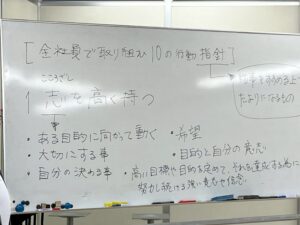 [全社員で取り組む10の行動指針]
仕事をすすめる上
たよりになるもの
こころざし
1 志を高く持つ
・ある目的に向かって動く
・希望
・大切にする事
・目的と自分の意志
・自分の決める事
・高い目標や目的を定めて、それを達成する為に
努力し続ける強い意志や信念